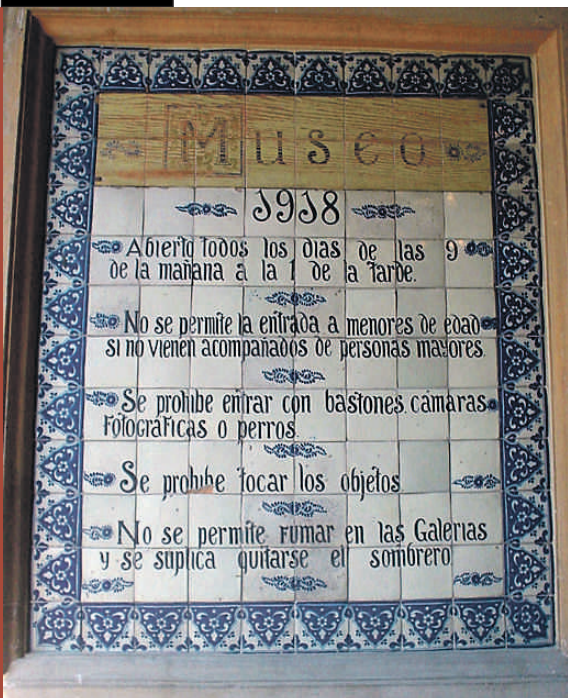 Museo
1918
Abierto todos los dias de las 9
de la mañana a la 1 de la tarde.
No se permite la entrada a menores de edad
si no vienen acompañados de personas mayores.
Se prohibe entrar con bastones, cámaras
fotográficas o perros.
Se prohibe tocar los objetos
No se permite fumar en las Galerias
y se suplica quitarse el sombrero